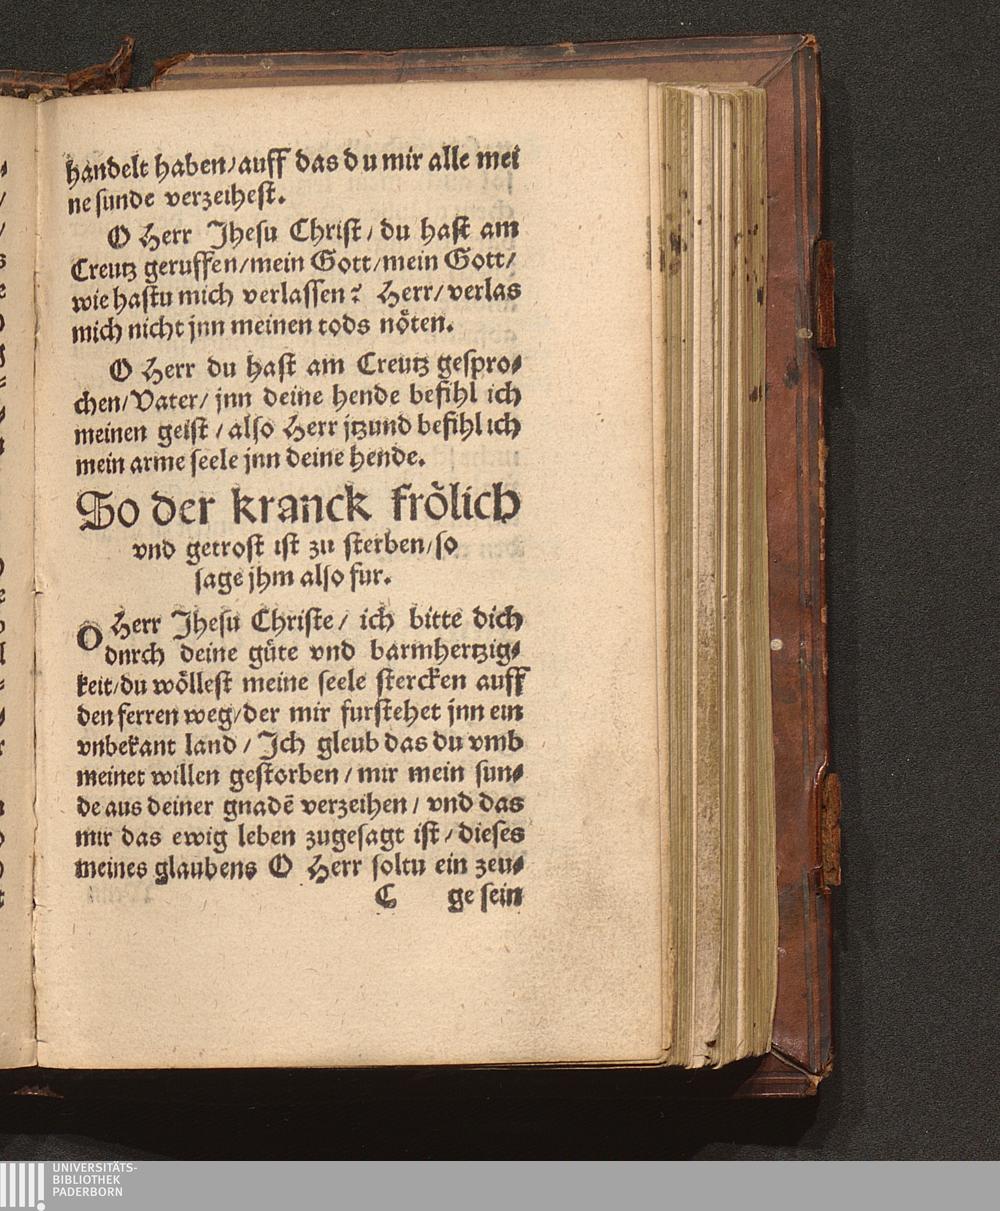 handelt haben/auff das du mir alle mei
ne sunde verzeihest.
O Herr Jhesu Christ/du hast am
Creutz geruffen/mein Gott/mein Gott/
wie hastu mich verlassen? Herr/verlas
mich nicht jnn meinen tods nöten.
O Herr du hast am Creutz gespro⸗
chen/Vater/jnn deine hende befihl ich
meinen geist/also Herr jtzund befihl ich
mein arme seele jnn deine hende.
So der kranck frölich
vnd getrost ist zu sterben/so
sage jhm also fur.
O Herr Jhesu Christe/ich bitte dich
dnrch deine güte vnd barmhertzig⸗
keit/du wöllest meine seele stercken auff
den ferren weg/der mir furstehet jnn ein
vnbekant land/Ich gleub das du vmb
meinet willen gestorben/mir mein sun⸗
de aus deiner gnadē verzeihen/vnd das
mir das ewig leben zugesagt ist/dieses
meines glaubens O Herr soltu ein zeu⸗
C ge sein
UNIVERSITÄTS-
BIBLIOTHEK
PADERBORN